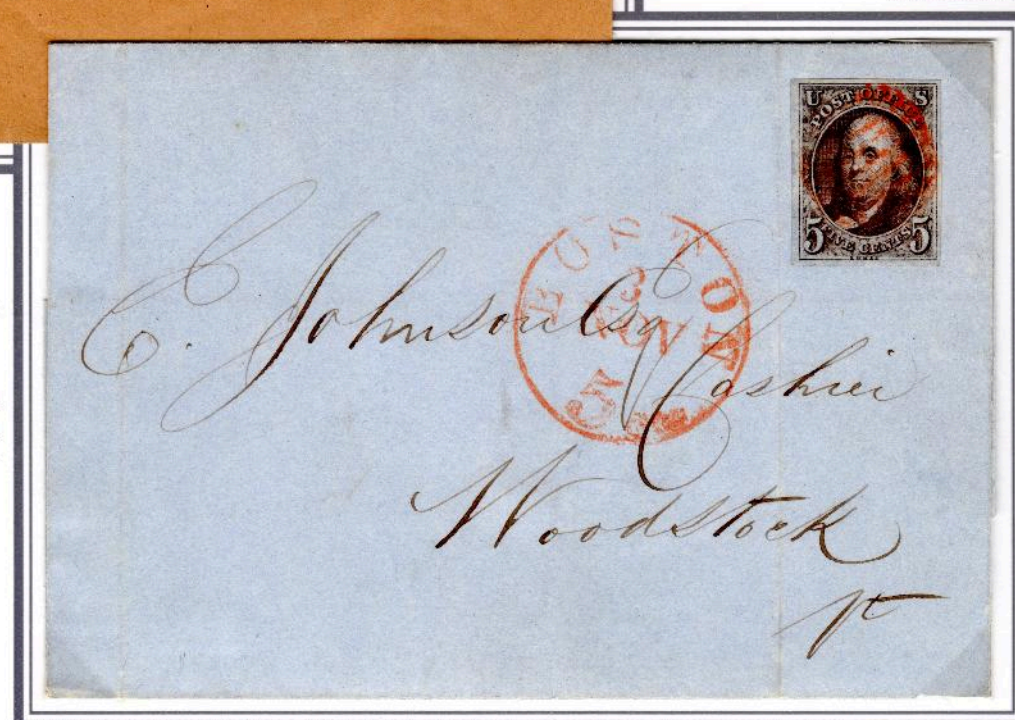 U S
POST OFFICE
5 FIVE CENTS 5
BOSTON
5
E. Johnson Esq
Cashier
Woodstock
Vt